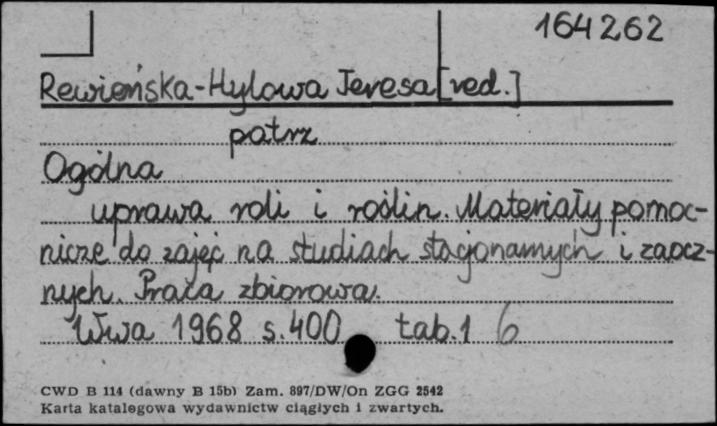 164262
Rewieńska-Hylowa Teresa [red.]
patrz
Ogólna
uprawa roli i roślin. Materiały pomoc-
nicze do zajęć na studiach stacjonarnych i zaocz-
nych. Praca zbiorowa.
Wwa 1968 s. 400 tab. 1 6
CWD B 114 (dawny B 15b) Zam. 897/DW/On ZGG 2542
Karta katalogowa wydawnictw ciągłych i zwartych.